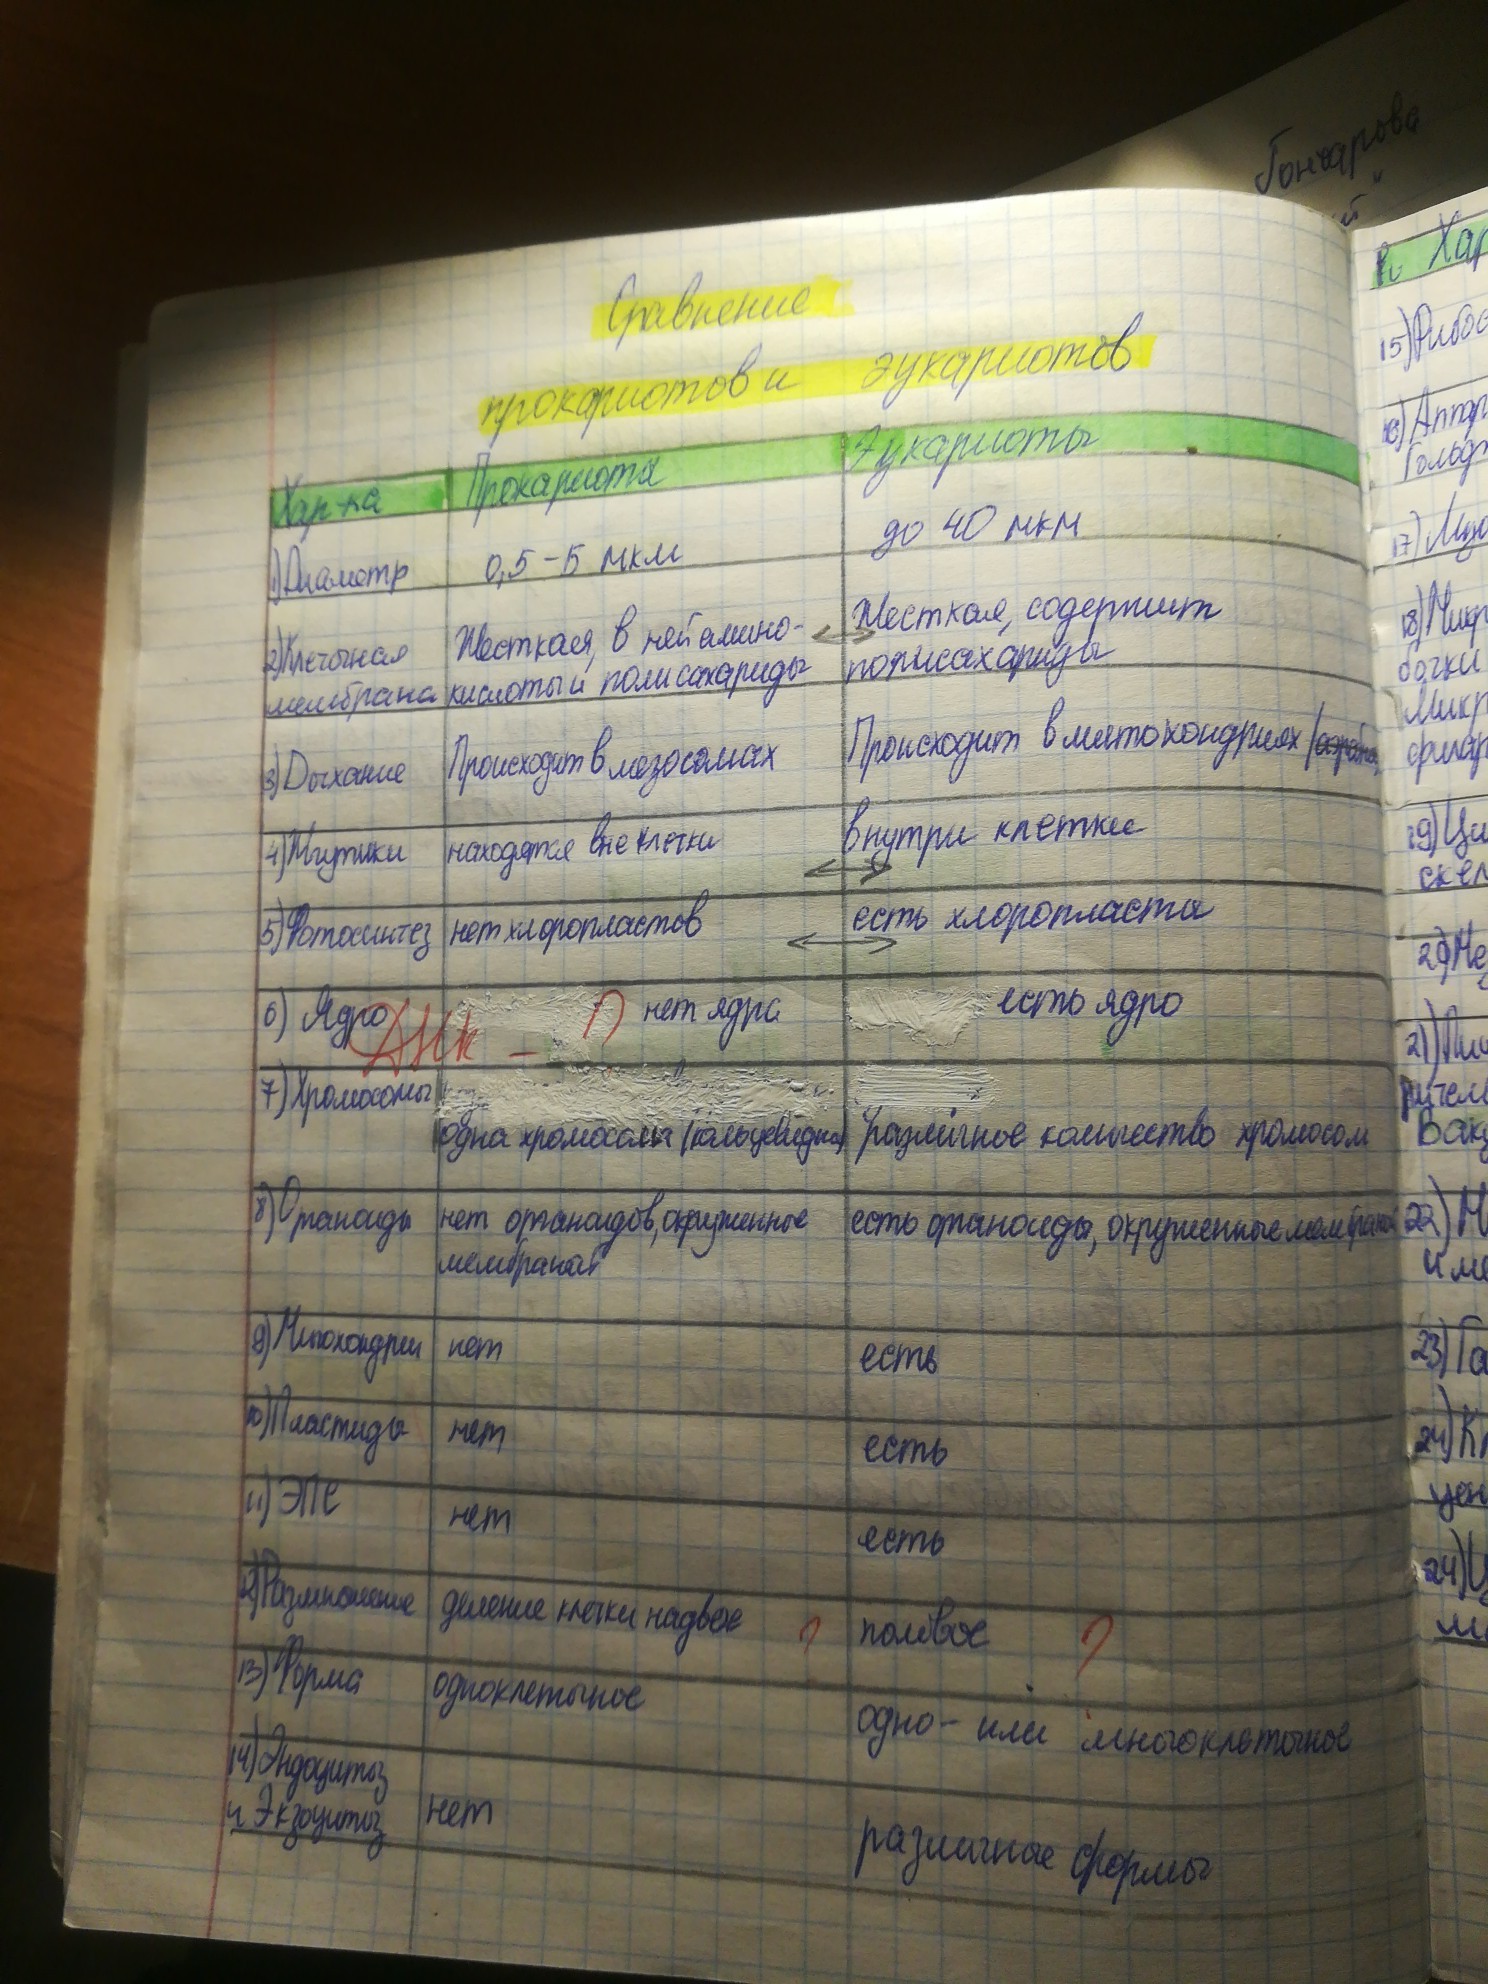 Гончарова
Сравнение
прокариотов и эукариотов
Хар-ка Прокариота Эукариоты
1) Диаметр 0,5-5 мкм до 40 мкм
2) Клеточная Жесткая, в ней амино- Жесткая, содержит
мембрана кислоты и полисахариды полисахариды
3) Дыхание Происходит в мезосомах Происходит в митохондриях
4) Жгутики находятся вне клетки внутри клетки
5) Фотосинтез нет хлоропластов есть хлоропласта
6) Ядро ДНК - ? нет ядра есть ядро
7) Хромосомы
одна хромосома (кольцевидная) различное количество хромосом
8) Органоиды нет органоидов, окруженные есть органоиды, окруженные мембраной
мембраной
9) Митохондрии нет есть
10) Пластиды нет есть
11) ЭПС нет есть
12) Размножение деление клетки надвое ? половое ?
13) Форма одноклеточное одно- или многоклеточное
14) Эндоцитоз
и Экзоцитоз нет различные формы
Хар
15) Рибос
16) Аппар
Гольдж
17)
18) Микр
бочки
Микр
филар
19) Ци
скел
20) Ме
21)
Ваку
22) М
и ме
23) Га
24) Кл
цен
24) Ц